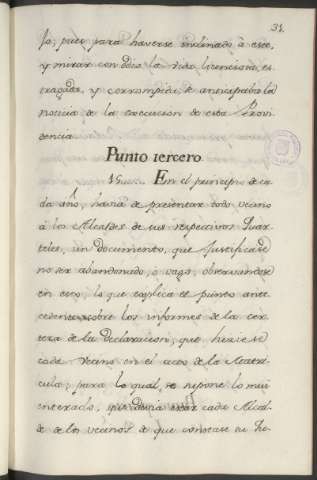 31.
jo; pues para haverse inclinado à este,
y mirar con odio la vida licenciosa, es-
tragada, y corrompida, le anticipaba la
noticia de la execucion de esta Provi-
dencia.
Punto tercero
15. En el principio de ca-
da año, havia de presentar todo vecino
à los Alcaldes de sus respectivos Quar-
teles, un documento, que justificase
no ser abandonado, ò vago, observandose
en esto, lo que explica el punto ante-
cedente, sobre los informes de la cer-
teza de la declaracion, que hiziese
cada vecino en el acto de la Matri-
cula; para lo qual, se supone lo mui
enterado, que devia estar cada Alcal-
de de los vecinos de que constase su